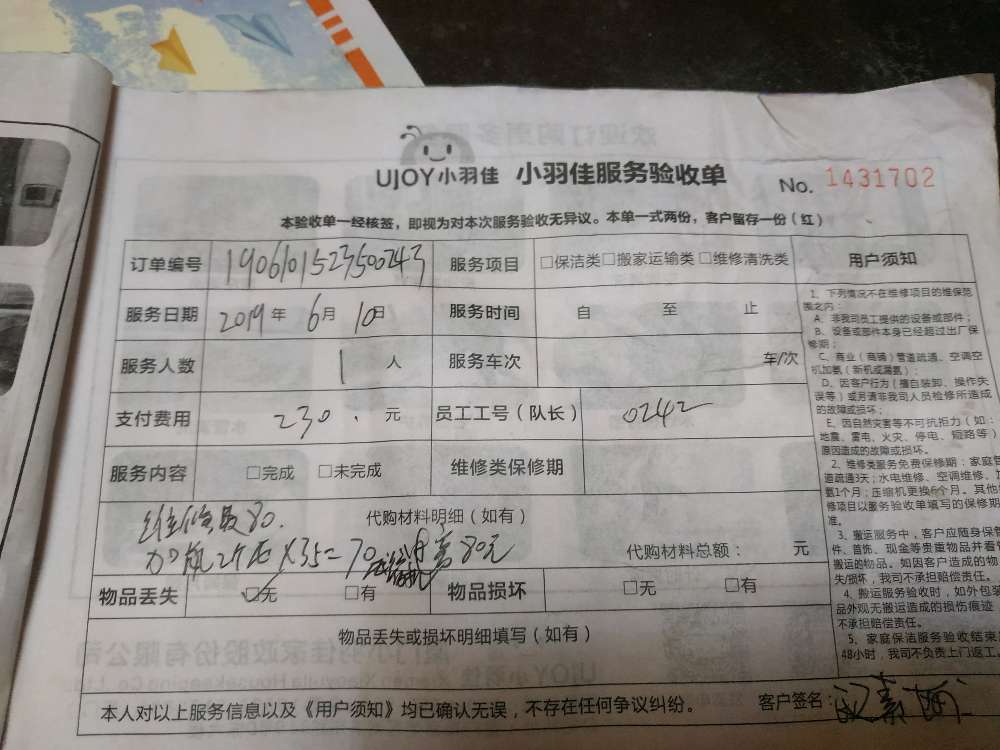 UJOY小羽佳 小羽佳服务验收单 No. 1431702
本验收单一经核签，即视为对本次服务验收无异议。本单一式两份，客户留存一份（红）
订单编号 1906101523500243 服务项目 □保洁类□搬家运输类□维修清洗类
服务日期 2019年 6月 10日 服务时间 自 至 止
服务人数 1 人 服务车次 车/次
支付费用 230. 元 员工工号（队长） 0242
服务内容 □完成 □未完成 维修类保修期
维修费80. 代购材料明细（如有）
加氟2个压X35=70 高80元 代购材料总额： 元
物品丢失 □无 □有 物品损坏 □无 □有
物品丢失或损坏明细填写（如有）
本人对以上服务信息以及《用户须知》均已确认无误，不存在任何争议纠纷。 客户签名：
用户须知
1、下列情况不在维修项目的维保范
围之内：
A、非我司员工提供的设备或部件；
B、设备或部件本身已经超过出厂保
修期；
C、商业（商铺）管道疏通、空调空
机加氨（新机或漏氨）；
D、因客户行为（擅自装卸、操作失
误等）或另请非我司人员检修所造成
的故障或损坏；
E、因自然灾害等不可抗拒力（如：
地震、雷电、火灾、停电、短路等）
原因造成的故障或损坏。
2、维修类服务免费保修期：家庭管
道疏通3天；水电维修、空调维修、加
氨1个月；压缩机更换6个月。其他维
修项目以服务验收单填写的保修期
准。
3、搬运服务中，客户应随身保管
件、首饰、现金等贵重物品并看管
搬运的物品。如因客户造成的物品
失/损坏，我司不承担赔偿责任。
4、搬运服务验收时，如外包装
品外观无搬运造成的损伤痕迹
不承担赔偿责任。
5、家庭保洁服务验收结束
48小时，我司不负责上门返工。